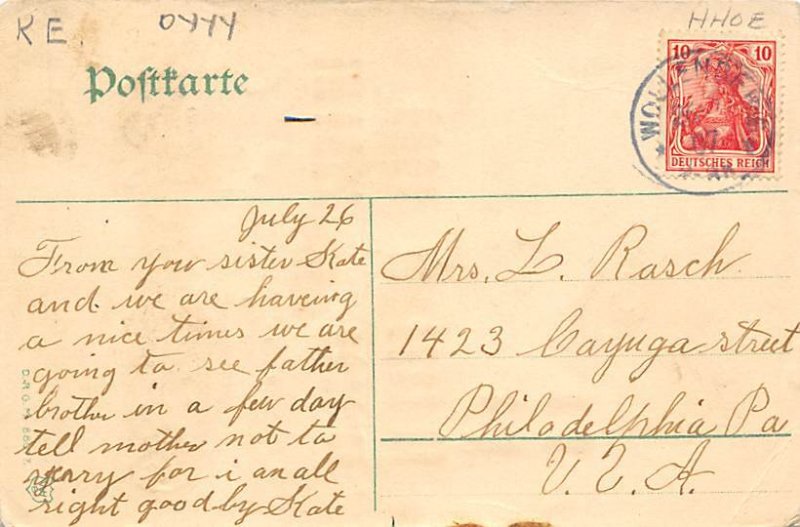 KE
0444
HHOE
Postkarte
10 10
DEUTSCHES REICH
July 26
From your sister Kate
and we are haveing
a nice times we are
going to see father
brother in a few day
tell mother not to
wary for i am all
right good by Kate
Mrs. L. Rasch
1423 Cayuga street
Philadelphia Pa
U.S.A.